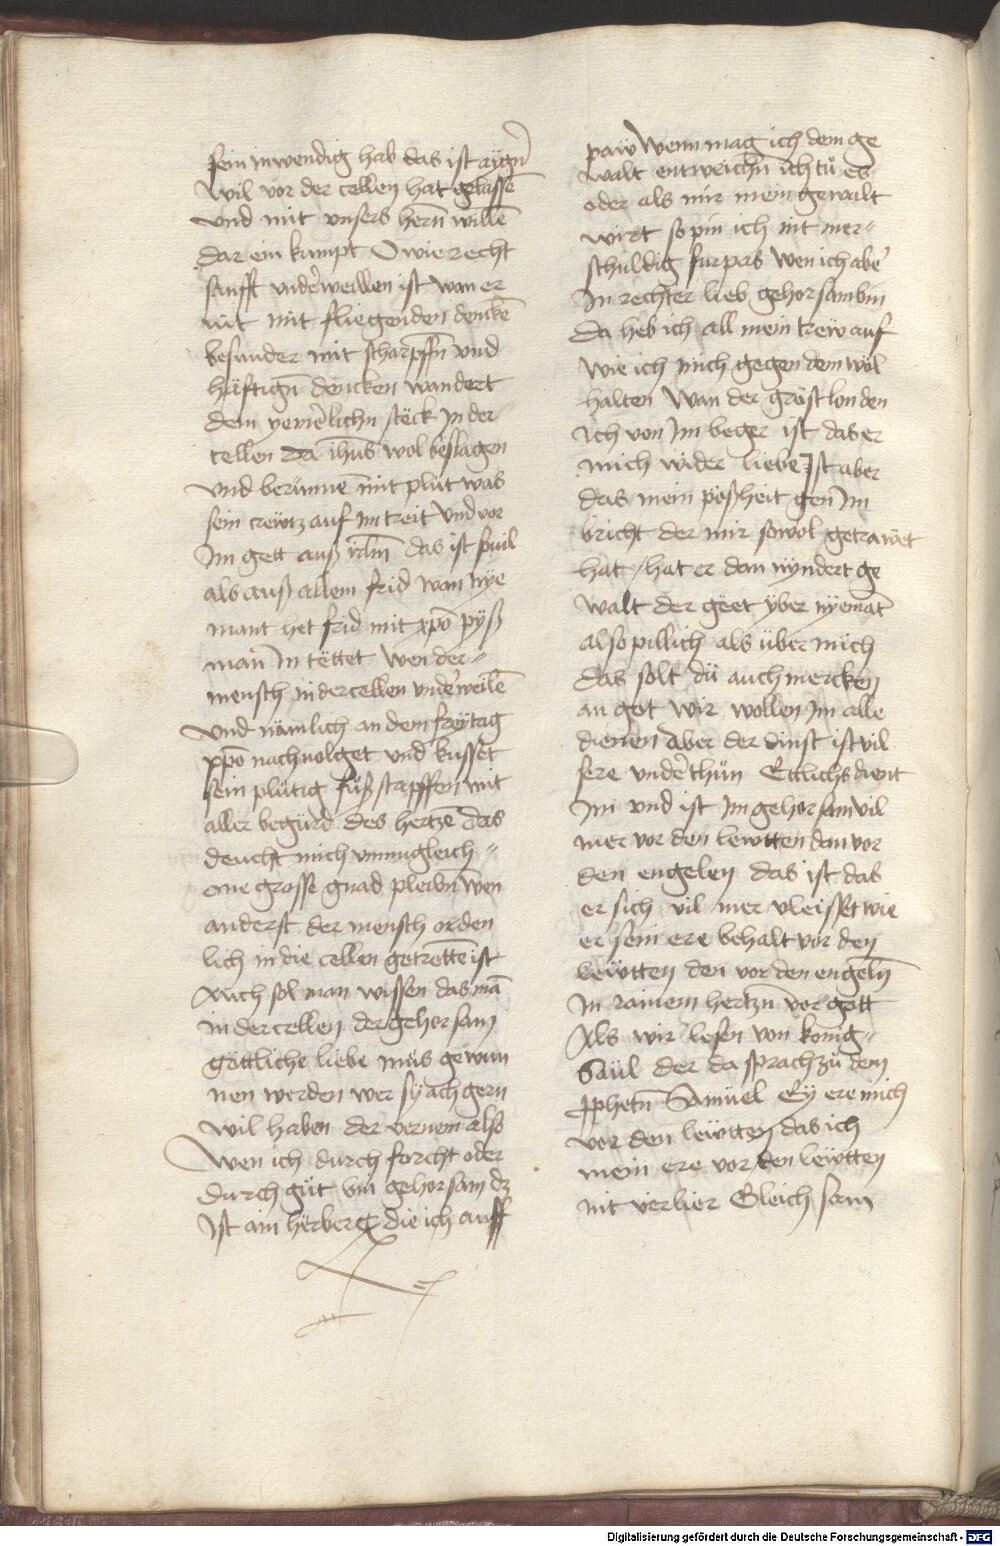 sein inwendig hab das ist aygn̄
wil vor der cellen hat gelassē
vnd mit vnsers hern̄ willē
dar ein kumpt O wie recht
sanfft vnderweillen ist wan er
nit mit fliegenden dencke
besunder mit scharpffn̄ vnd
häftign̄ dencken wandert
dem yemerlichn steick In der
cellen da ih̄us wol beslagen
vnd berünne mit plüt was
sein crewtz auf im treit Vnd vor
Im gett auß irl̄m das ist souil
als auß allem frid wan nye
mant het frid mit xpō pyß
man̄ In tettet wen der
mensch in der cellen vnderweilē
Vnd nämlich an dem freytag
xpō nachuolget vnd kusset
sein plütig fůßstapffen mit
aller begürd des hertzē das
deucht mich vnmugleich
one grosse gnad pleibn̄ wen
anderst der mensch orden
lich in die cellen getrettē ist
Auch sol man wissen das mā
in der cellen der gehorsam
göttliche liebe müs gewun
nen werden wer sy ach gern
wil haben der vernem also
Wen ich durch forcht oder
durch güt bin gehorsam dz
Ist ain herberg die ich auff
paw Wenn mag ich dem ge
walt entweichn̄ ich tů es
oder als mir mein gewalt
wirt so pin ich nit mer
schuldig furpas Wen ich aber
In rechter lieb gehorsam bin
da heb ich all mein trew auf
wie ich mich gegen dem wöl
halten Wan der gröst lon den
ich von Im beger ist das er
mich wider liebe Ist aber
das mein pößheit gen Im
bricht der mir so wol getrawet
hat / hat er dan nyndert ge
walt der geet yber nyemāt
also pillich als über mich
das solt dü auch mercken
an got wir wollen Im alle
dienen Aber der dinst ist vil
sere vnderthün Ettlichs dient
Im vnd ist Im gehorsam vil
mer vor den lewtten dan vor
den engelen das ist das
er sich vil mer vleisset wie
er sein ere behalt vor den
lewtten den vor den engeln̄
In rainem hertzn̄ vor gott
Als wir lesen von konig
Saül der da sprach zů dem
pphetn̄ Samüel Ey ere mich
vor den lewtten das ich
mein ere vor den lewtten
nit verlier Gleichsam
Digitalisierung gefördert durch die Deutsche Forschungsgemeinschaft - DFG